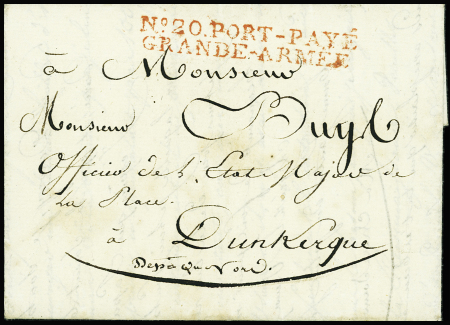 Nº20.PORT-PAYÉ
GRANDE-ARMÉE
à Monsieur
Monsieur
Officier de l'Etat Major de
La Place.
à Dunkerque
Nord.